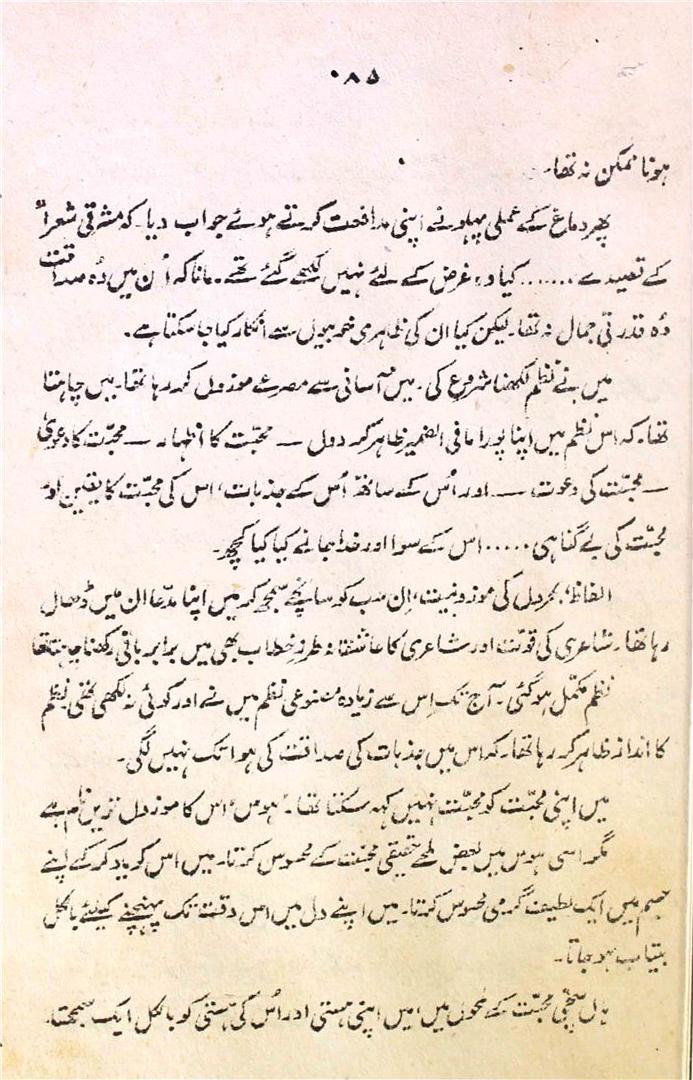 ۰۸۵
ہونا ممکن نہ تھا۔
پھر دماغ کے عملی پہلو نے اپنی مدافعت کرتے ہوئے جواب دیا۔ کہ مشرقی شعرا
کے قصیدے ....... کیا وہ غرض کے لئے نہیں لکھے گئے تھے۔ مانا کہ اُن میں وُہ صداقت
وُہ قدرتی جمال نہ تھا۔ لیکن کیا ان کی ظاہری خوبیوں سے انکار کیا جا سکتا ہے۔
میں نے نظم لکھنا شروع کی۔ میں آسانی سے مصرعے موزوں کر رہا تھا۔ میں چاہتا
تھا۔ کہ اس نظم میں اپنا پورا مافی الضمیر ظاہر کر دوں — محبّت کا اظہار — محبّت کا دعویٰ
— محبّت کی دعوت، — اور اُس کے ساتھ اُس کے جذبات، اس کی محبّت کا یقین اور
محبّت کی بے گناہی ..... اس کے سوا اور خدا جانے کیا کیا کچھ۔
الفاظ، بحر دل کی موزونیت، اِن سب کو سانچے سمجھ کر میں اپنا مدّعا ان میں ڈھال
رہا تھا۔ شاعری کی قوت اور شاعری کا عاشقانہ طرز خطاب بھی میں برابر باقی رکھنا چاہتا تھا
نظم مکمّل ہو گئی۔ آج تک اِس سے زیادہ مصنوعی نظم میں نے اور کوئی نہ لکھی تھی نظم
کا انداز ظاہر کر رہا تھا۔ کہ اس میں جذبات کی صداقت کی ہوا تک نہیں لگی۔
میں اپنی محبّت کو محبّت نہیں کہہ سکتا تھا۔ ’ہوس‘ اس کا موزوں ترین نام ہے
مگر اسی ہوس میں بعض لمحے حقیقی محبّت کے محسوس کرتا۔ میں اس کو یاد کر کے اپنے
جسم میں ایک لطیف گرمی محسوس کرتا۔ میں اپنے دل میں اس وقت تک پہنچنے کیلئے بالکل
بیتاب ہو جاتا۔
ہاں سچّی محبّت کے لمحوں میں، میں اپنی ہستی اور اُس کی ہستی کو بالکل ایک سمجھتا۔